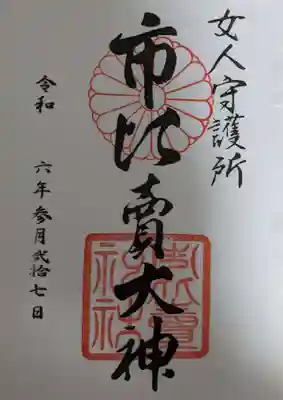 女人守護所
市比賣大神
令和 六年参月弐拾七日
市比賣神社